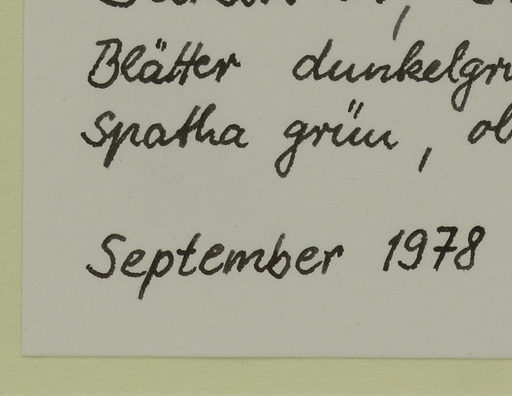 Blätter dunkelgrü
Spatha grün, ob
September 1978